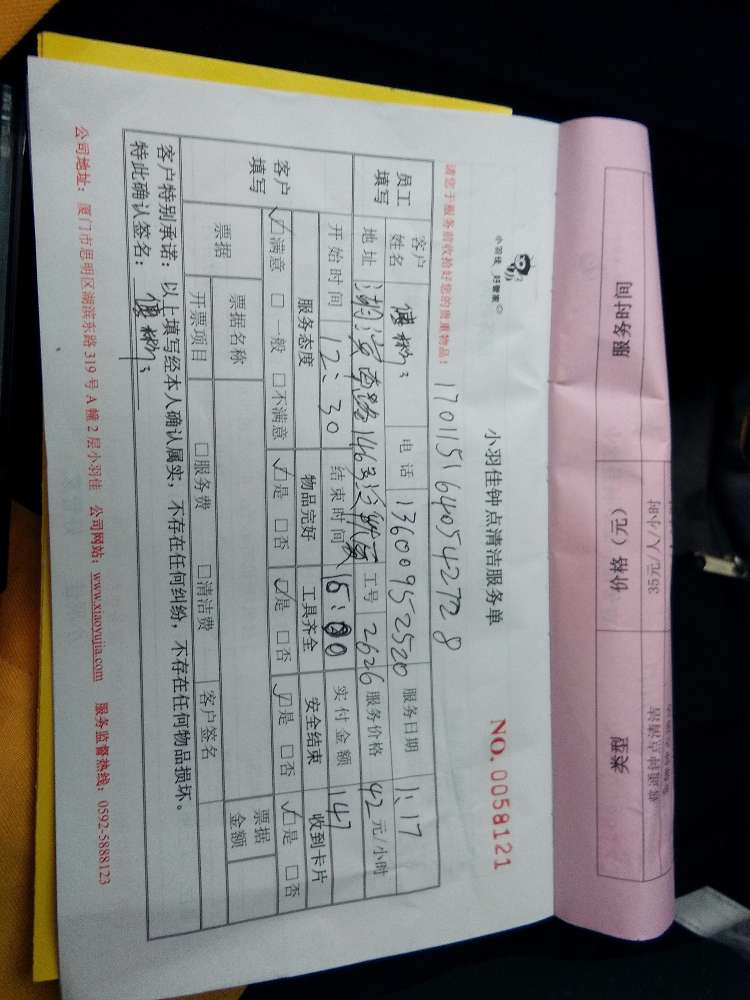 服务时间
价格（元）
类型
35元/人/小时
普通钟点清洁
小羽佳 好管家
小羽佳钟点清洁服务单
NO. 0058121
请您于服务前收拾好您的贵重物品！
17011516405542728
员工填写
客户姓名
电话 13600952520
服务日期 1.17
地址
工号 2626
服务价格 42元/小时
开始时间 12:30
结束时间
实付金额 147
客户填写
服务态度 物品完好 工具齐全 安全结束 收到卡片
☑满意 □一般 □不满意 ☑是 □否 ☑是 □否 ☑是 □否 ☑是 □否
票据
票据名称
票据金额
开票项目 □服务费 □清洁费 客户签名
客户特别承诺：以上填写经本人确认属实，不存在任何纠纷，不存在任何物品损坏。
特此确认签名：
公司地址：厦门市思明区湖滨东路319号A幢2层小羽佳 公司网站：www.xiaoyujia.com 服务监督热线：0592-5888123